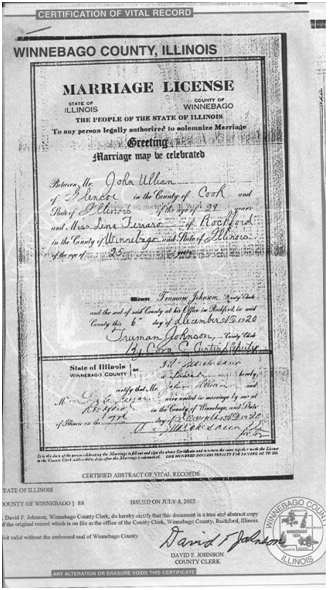 CERTIFICATION OF VITAL RECORD
WINNEBAGO COUNTY, ILLINOIS
MARRIAGE LICENSE
STATE OF ILLINOIS
COUNTY OF WINNEBAGO
THE PEOPLE OF THE STATE OF ILLINOIS
To any person legally authorized to solemnize Marriage
Greeting
Marriage may be celebrated
Between Mr. John Ullian
of Glencoe in the County of Cook and
State of Illinois of the age of 29 years
and Miss Jane of Rockford
in the County of Winnebago and State of Illinois
of the age of 25 years
Witness Truman Johnson, County Clerk
and the seal of said County at his office in Rockford, in said
County this 6th day of December A.D. 1920
Truman Johnson, County Clerk
By Deputy
State of Illinois
WINNEBAGO COUNTY
hereby
certify that Mr. John and
M were united in marriage by me at
Rockford in the County of Winnebago, and State
of Illinois on the day of A.D. 1920
CERTIFIED ABSTRACT OF VITAL RECORDS
STATE OF ILLINOIS
COUNTY OF WINNEBAGO } SS ISSUED ON JULY 8, 2005
David F. Johnson, Winnebago County Clerk, do hereby certify that this document is a true and abstract copy
of the original record which is on file in the office of the County Clerk, Winnebago County, Rockford, Illinois.
Not valid without the embossed seal of Winnebago County
David F Johnson
DAVID F. JOHNSON
COUNTY CLERK
WINNEBAGO COUNTY
ANY ALTERATION OR ERASURE VOIDS THIS CERTIFICATE